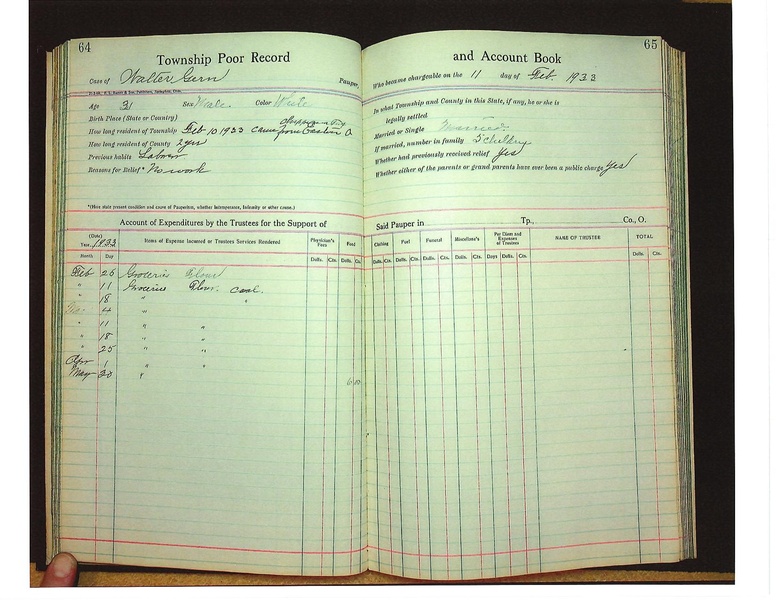 64
Township Poor Record
Case of Walter Gern Pauper,
Age 31 Sex Male Color White
Birth Place (State or County)
How long resident of Township Feb 10 1933 came from Canton O
How long resident of County 2 yrs
Previous habits Laborer
Reasons for Relief* No work
*(Here state present condition and cause of Pauperism, whether Intemperance, Infirmity or other cause.)
Account of Expenditures by the Trustees for the Support of
(Date)
Year, 1933
Items of Expense Incurred or Trustees Services Rendered
Physician's Fees
Food
Month Day Dolls. Cts. Dolls. Cts.
Feb 26 Groceries Flour
" 11 Groceries Flour coal
" 18 " "
4 "
" 11 " "
" 18 " "
" 25 " "
Apr 1 " "
May 30 "
65
and Account Book
Who became chargeable on the 11 day of Feb. 1933
In what Township and County in this State, if any, he or she is
legally settled
Married or Single Married
If married, number in family 5 children
Whether had previously received relief Yes
Whether either of the parents or grand parents have ever been a public charge Yes
Said Pauper in Tp., Co., O.
Clothing Fuel Funeral Miscellane's Per Diem and Expenses of Trustees NAME OF TRUSTEE TOTAL
Dolls. Cts. Dolls. Cts. Dolls. Cts. Dolls. Cts. Days Dolls. Cts. Dolls. Cts.